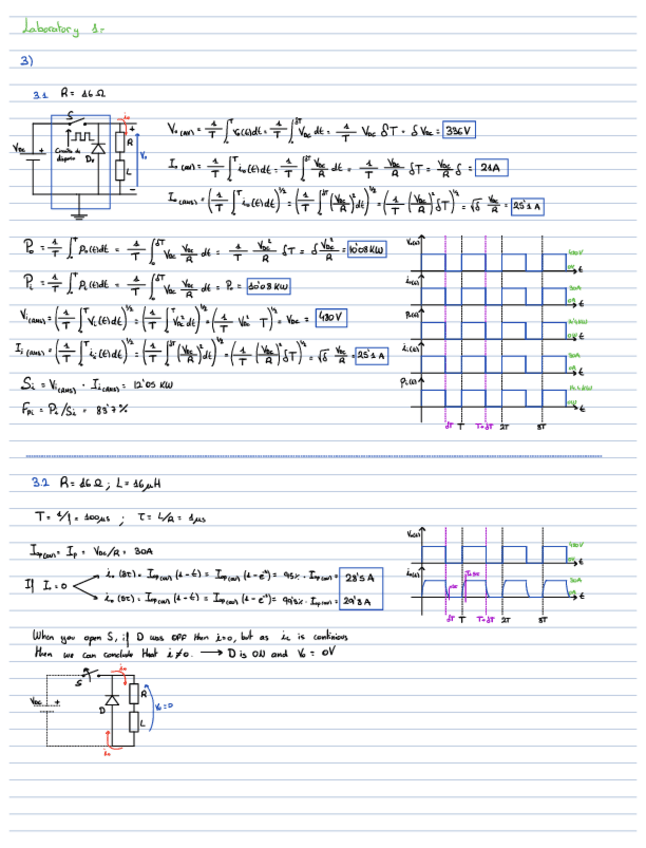 Laboratory 1:
3)
3.1 R = 16 Ω
S
Vdc + D₀ R L V₀
V₀(AV) = 1/T ∫₀ᵀ v₀(t)dt = 1/T ∫₀^δT Vdc dt = 1/T Vdc δT = δ Vdc = 336V
I₀(AV) = 1/T ∫₀ᵀ i₀(t)dt = 1/T ∫₀^δT Vdc/R dt = 1/T Vdc/R δT = Vdc/R δ = 21A
I₀(RMS) = (1/T ∫₀ᵀ i₀(t)dt)^1/2 = (1/T ∫₀^δT (Vdc/R)² dt)^1/2 = (1/T (Vdc/R)² δT)^1/2 = √δ Vdc/R = 25'1 A
P₀ = 1/T ∫₀ᵀ p₀(t)dt = 1/T ∫₀^δT Vdc Vdc/R dt = 1/T Vdc²/R δT = δ Vdc²/R = 10'08 KW
Pi = 1/T ∫₀ᵀ pi(t)dt = 1/T ∫₀^δT Vdc Vdc/R dt = P₀ = 10'08 KW
Vi(RMS) = (1/T ∫₀ᵀ Vi(t)dt)^1/2 = (1/T ∫₀ᵀ Vdc² dt)^1/2 = (1/T Vdc² T)^1/2 = Vdc = 480V
Ii(RMS) = (1/T ∫₀ᵀ ii(t)dt)^1/2 = (1/T ∫₀^δT (Vdc/R)² dt)^1/2 = (1/T (Vdc/R)² δT)^1/2 = √δ Vdc/R = 25'1 A
Si = Vi(RMS) · Ii(RMS) = 12'05 KW
Fpi = Pi/Si = 83'7%
V₀(t) 480V 0V t
i₀(t) 30A 0A t
p₀(t) t
ii(t) 30A 0A t
pi(t) t
δT T T+δT 2T 3T
3.2 R = 16 Ω ; L = 16 μH
T = 1/f = 100μs ; τ = L/R = 1μs
I₀p(AV) = Ip = Vdc/R = 30A
If I₀ = 0
i₀(3τ) = I₀p(AV) (1-t) = I₀p(AV) (1-e⁻³) = 95% · I₀p(AV) = 28'5 A
i₀(5τ) = I₀p(AV) (1-t) = I₀p(AV) (1-e⁻⁵) = 99'3% · I₀p(AV) = 29'8 A
V₀(t) 480V 0V t
i₀(t) 30A 0A t
δT T T+δT 2T 3T
When you open S, if D was OFF then i=0, but as iL is continious
then we can conclude that i≠0. → D is ON and V₀ = 0V
i₀
S
Vdc + D R L V₀=0
i₀